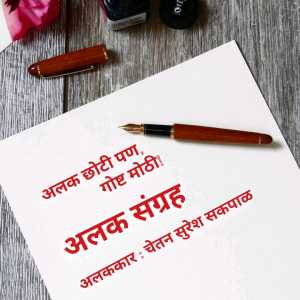 अलक छोटी पण,
गोष्ट मोठी!
अलक संग्रह
अलककार : चेतन सुरेश सकपाळ